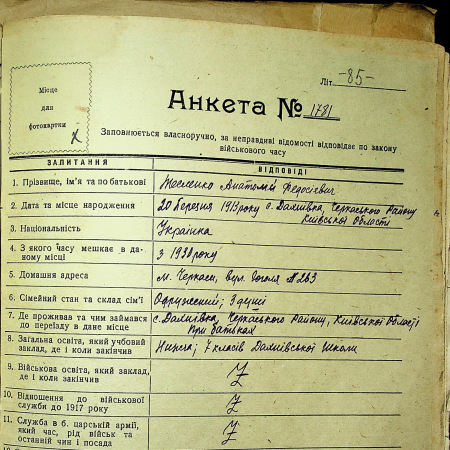 Літ. -85-
Місце
для
фотокартки
Анкета № 1781
Заповнюється власноручно, за неправдиві відомості відповідає по закону
військового часу
ЗАПИТАННЯ ВІДПОВІДІ
1. Прізвище, ім'я та по батькові Анатолій Федосієвич
2. Дата та місце народження 20 березня 1913 року с. Дахнівка, Черкаського Району
Київської Области
3. Національність Українка
4. З якого часу мешкає в да-
ному місці З 1930 року
5. Домашня адреса м. Черкаси, вул. Гоголя № 263
6. Сімейний стан та склад сім'ї Одружений; 3 душі
7. Де проживав та чим займався
до переїзду в дане місце с. Дахнівка, Черкаського Району, Київської Області
при батьках
8. Загальна освіта, який учбовий
заклад, де і коли закінчив Нижча; 7 класів Дахнівської школи
9. Військова освіта, який заклад,
де і коли закінчив Z
10. Відношення до військової
служби до 1917 року Z
11. Служба в б. царській армії,
який час, рід військ та
останній чин і посада Z